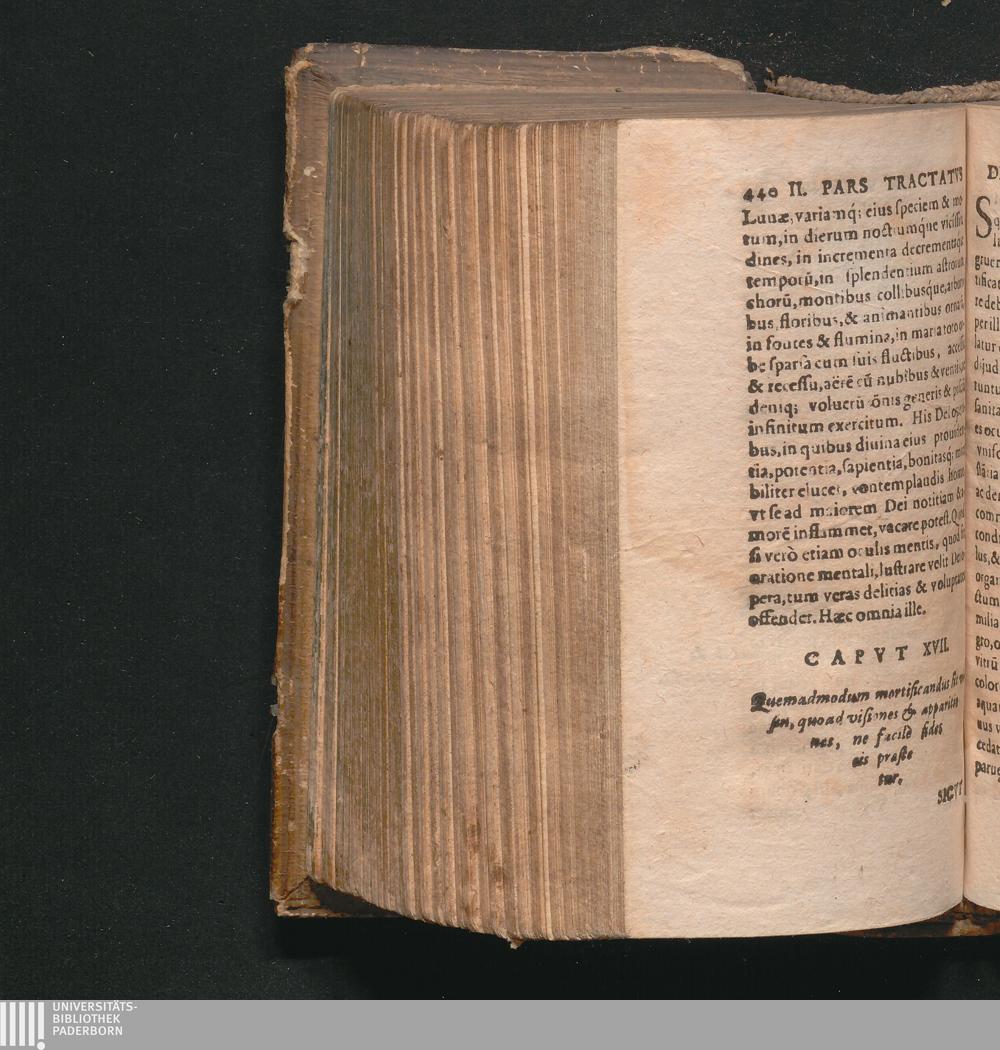 440 II. PARS TRACTATVS
Lunæ, variamq́; eius ſpeciem & mo
tum, in dierum noctiumq́ue viciſſitu
dines, in incrementa decrementaque
temporū, in ſplendentium aſtrorum
chorū, montibus collibusque, arbori
bus, floribus, & animantibus ornata
in fontes & flumina, in maria toto or
be ſparſa cum ſuis fluctibus, acceſſu
& receſſu, aërē cū nubibus & ventis
deniq; volucrū ōnis generis &
infinitum exercitum. His Dei ope
bus, in quibus diuina eius prouiden
tia, potentia, ſapientia, bonitasq́; mi
biliter elucet, contemplandis homo
vt ſe ad maiorem Dei notitiam & a
morē inflammet, vacare poteſt. Quod
ſi verò etiam oculis mentis, quod fit
oratione mentali, luſtrare velit Dei o
pera, tum veras delitias & voluptates
offendet. Hæc omnia ille.
CAPVT XVII.
Quemadmodum mortificandus ſit
ſus, quoad viſiones & apparitio
nes, ne facilè fides
eis præſte
tur.
SICVT
D
S
q
li
gruen
tificat
re deb
per ill
latur
dijud
tuntu
ſanita
es ocu
vniſc
ac der
comm
condi
lus, &
organ
ctum
milia
gro, o
vitrū
color
aqua
nus v
cedat
parue
UNIVERSITÄTS-
BIBLIOTHEK
PADERBORN